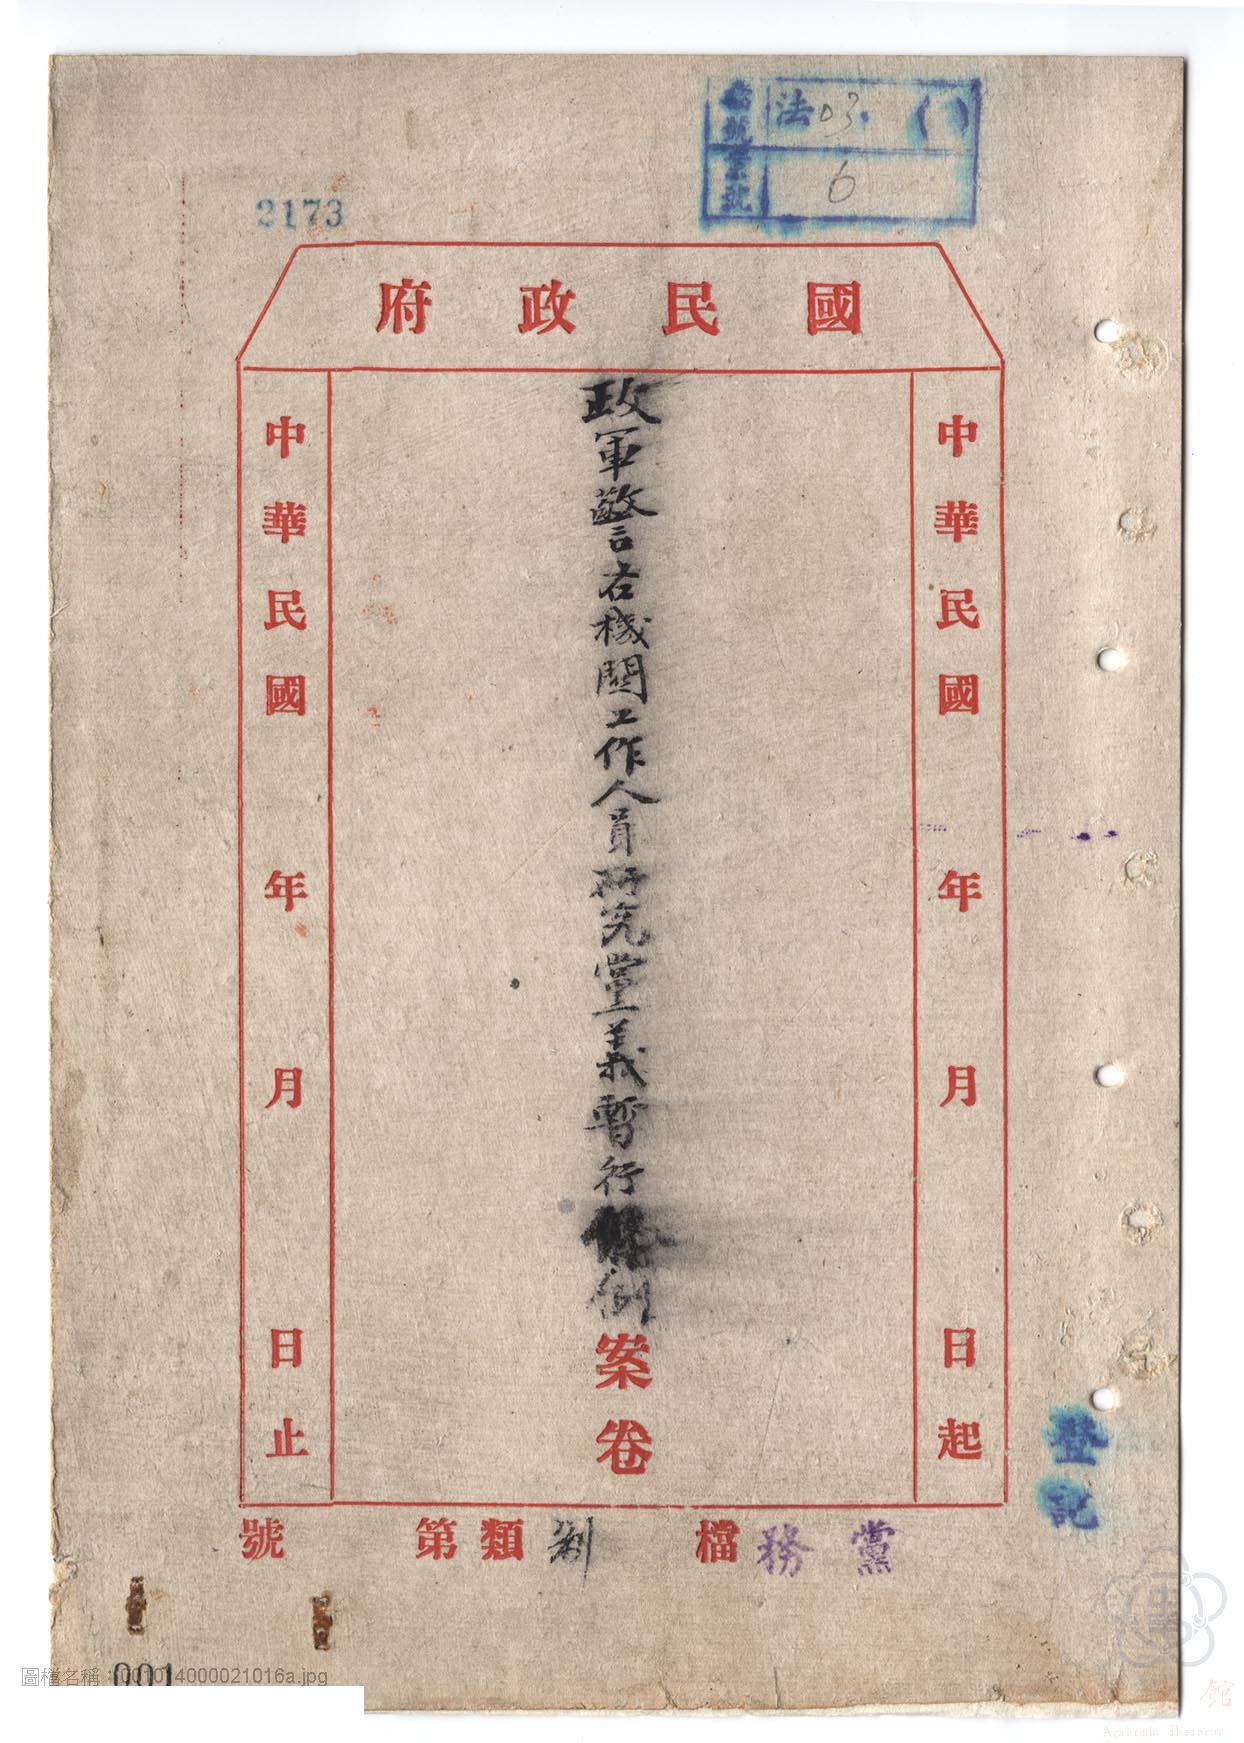 法03.( )
號
案號
6
2173
國民政府
中華民國 年 月 日起
政軍警各機關工作人員研究黨義暫行條例
案卷
中華民國 年 月 日止
登記
黨務檔 制類第 號
001
圖檔名稱：0010140000021016a.jpg
館
Academia Historica